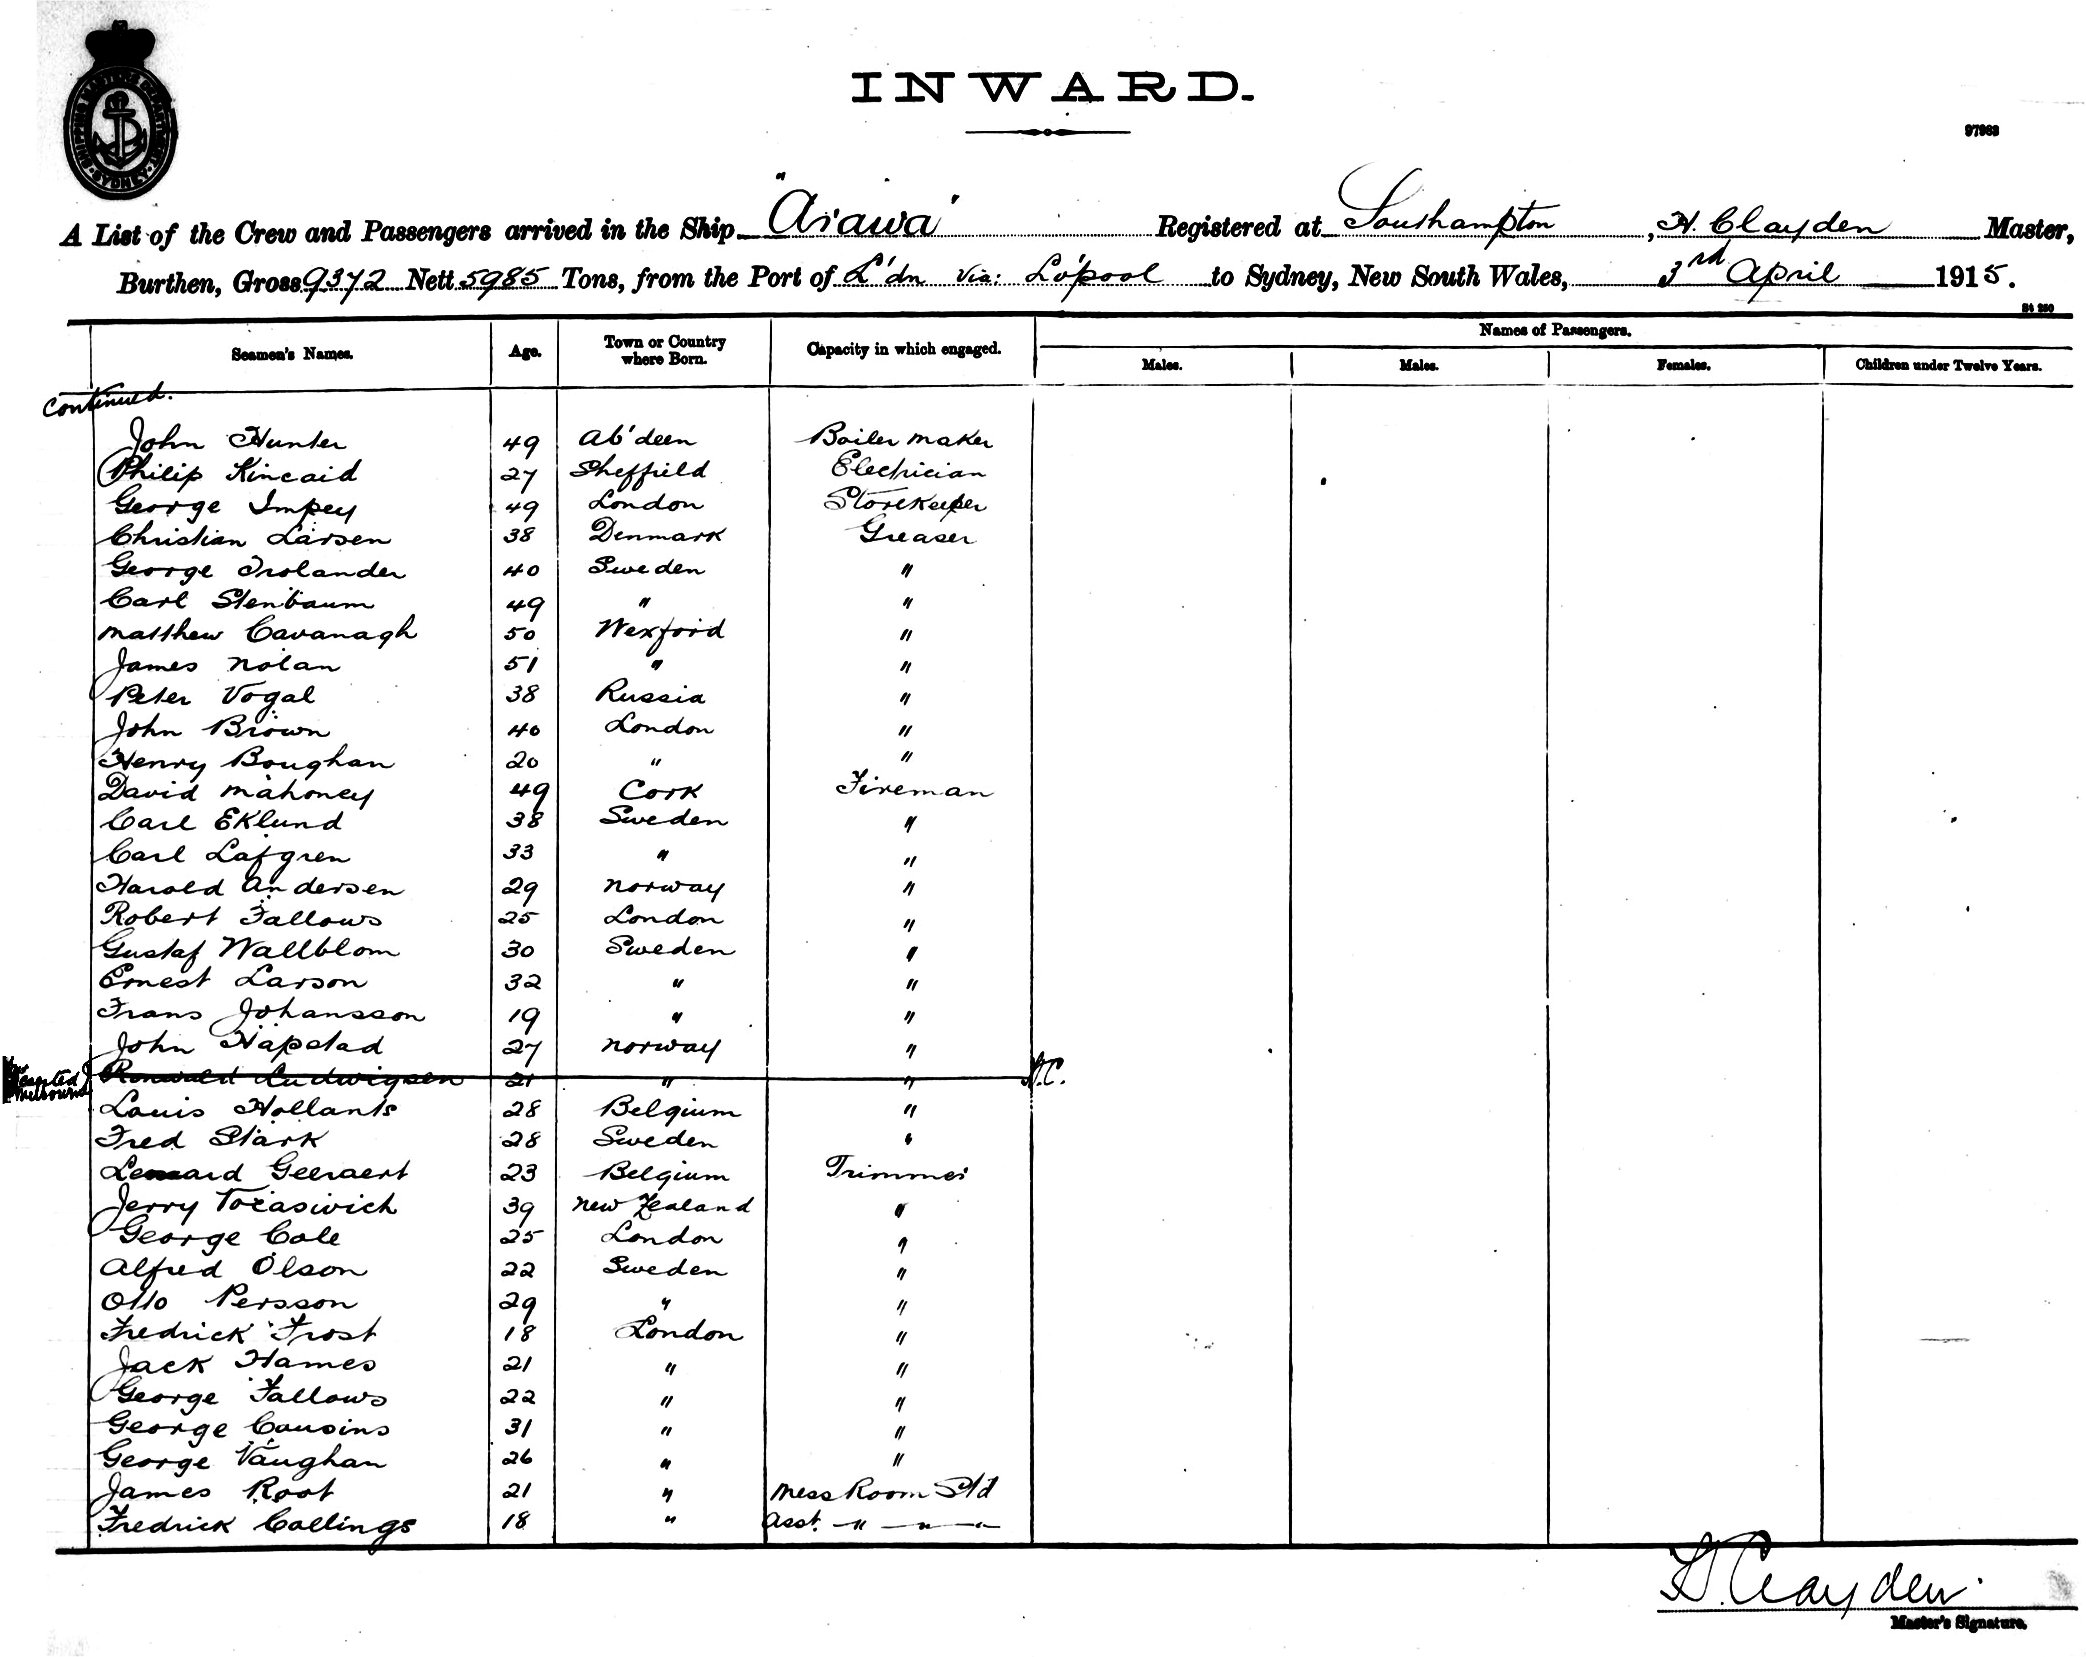 SHIPPING MASTER'S DEPARTMENT · SYDNEY ·
INWARD.
97963
A List of the Crew and Passengers arrived in the Ship "Arawa" Registered at Southampton, H. Clayden Master,
Burthen, Gross 9372 Nett 5985 Tons, from the Port of L'dn via: L'pool to Sydney, New South Wales, 3rd April 1915.
Seamen's Names. Age. Town or Country where Born. Capacity in which engaged. Names of Passengers.
Males. Males. Females. Children under Twelve Years.
Continued.
John Hunter 49 Ab'deen Boiler maker
Philip Kincaid 27 Sheffield Electrician
George Impey 49 London Storekeeper
Christian Larsen 38 Denmark Greaser
George Trolander 40 Sweden "
Carl Stenbaum 49 " "
Matthew Cavanagh 50 Wexford "
James Nolan 51 " "
Peter Vogal 38 Russia "
John Brown 40 London "
Henry Boughan 20 " "
David Mahoney 49 Cork Fireman
Carl Eklund 38 Sweden "
Carl Lafgren 33 " "
Harold Andersen 29 Norway "
Robert Fallows 25 London "
Gustaf Wallblom 30 Sweden "
Ernest Larson 32 " "
Frans Johansson 19 " "
John Hapstad 27 Norway "
Deserted Melbourne Ronwald Ludwigsen 21 " " H.C.
Louis Hollants 28 Belgium "
Fred Stark 28 Sweden "
Geeraert 23 Belgium Trimmer
Jerry Torasivich 39 New Zealand "
George Cole 25 London "
Alfred Olson 22 Sweden "
Otto Persson 29 " "
Fredrick Frost 18 London "
Jack Hames 21 " "
George Fallows 22 " "
George Cousins 31 " "
George Vaughan 26 " "
James Root 21 " Mess Room Std
Fredrick Collings 18 " Asst. " " "
H. Clayden
Master's Signature.